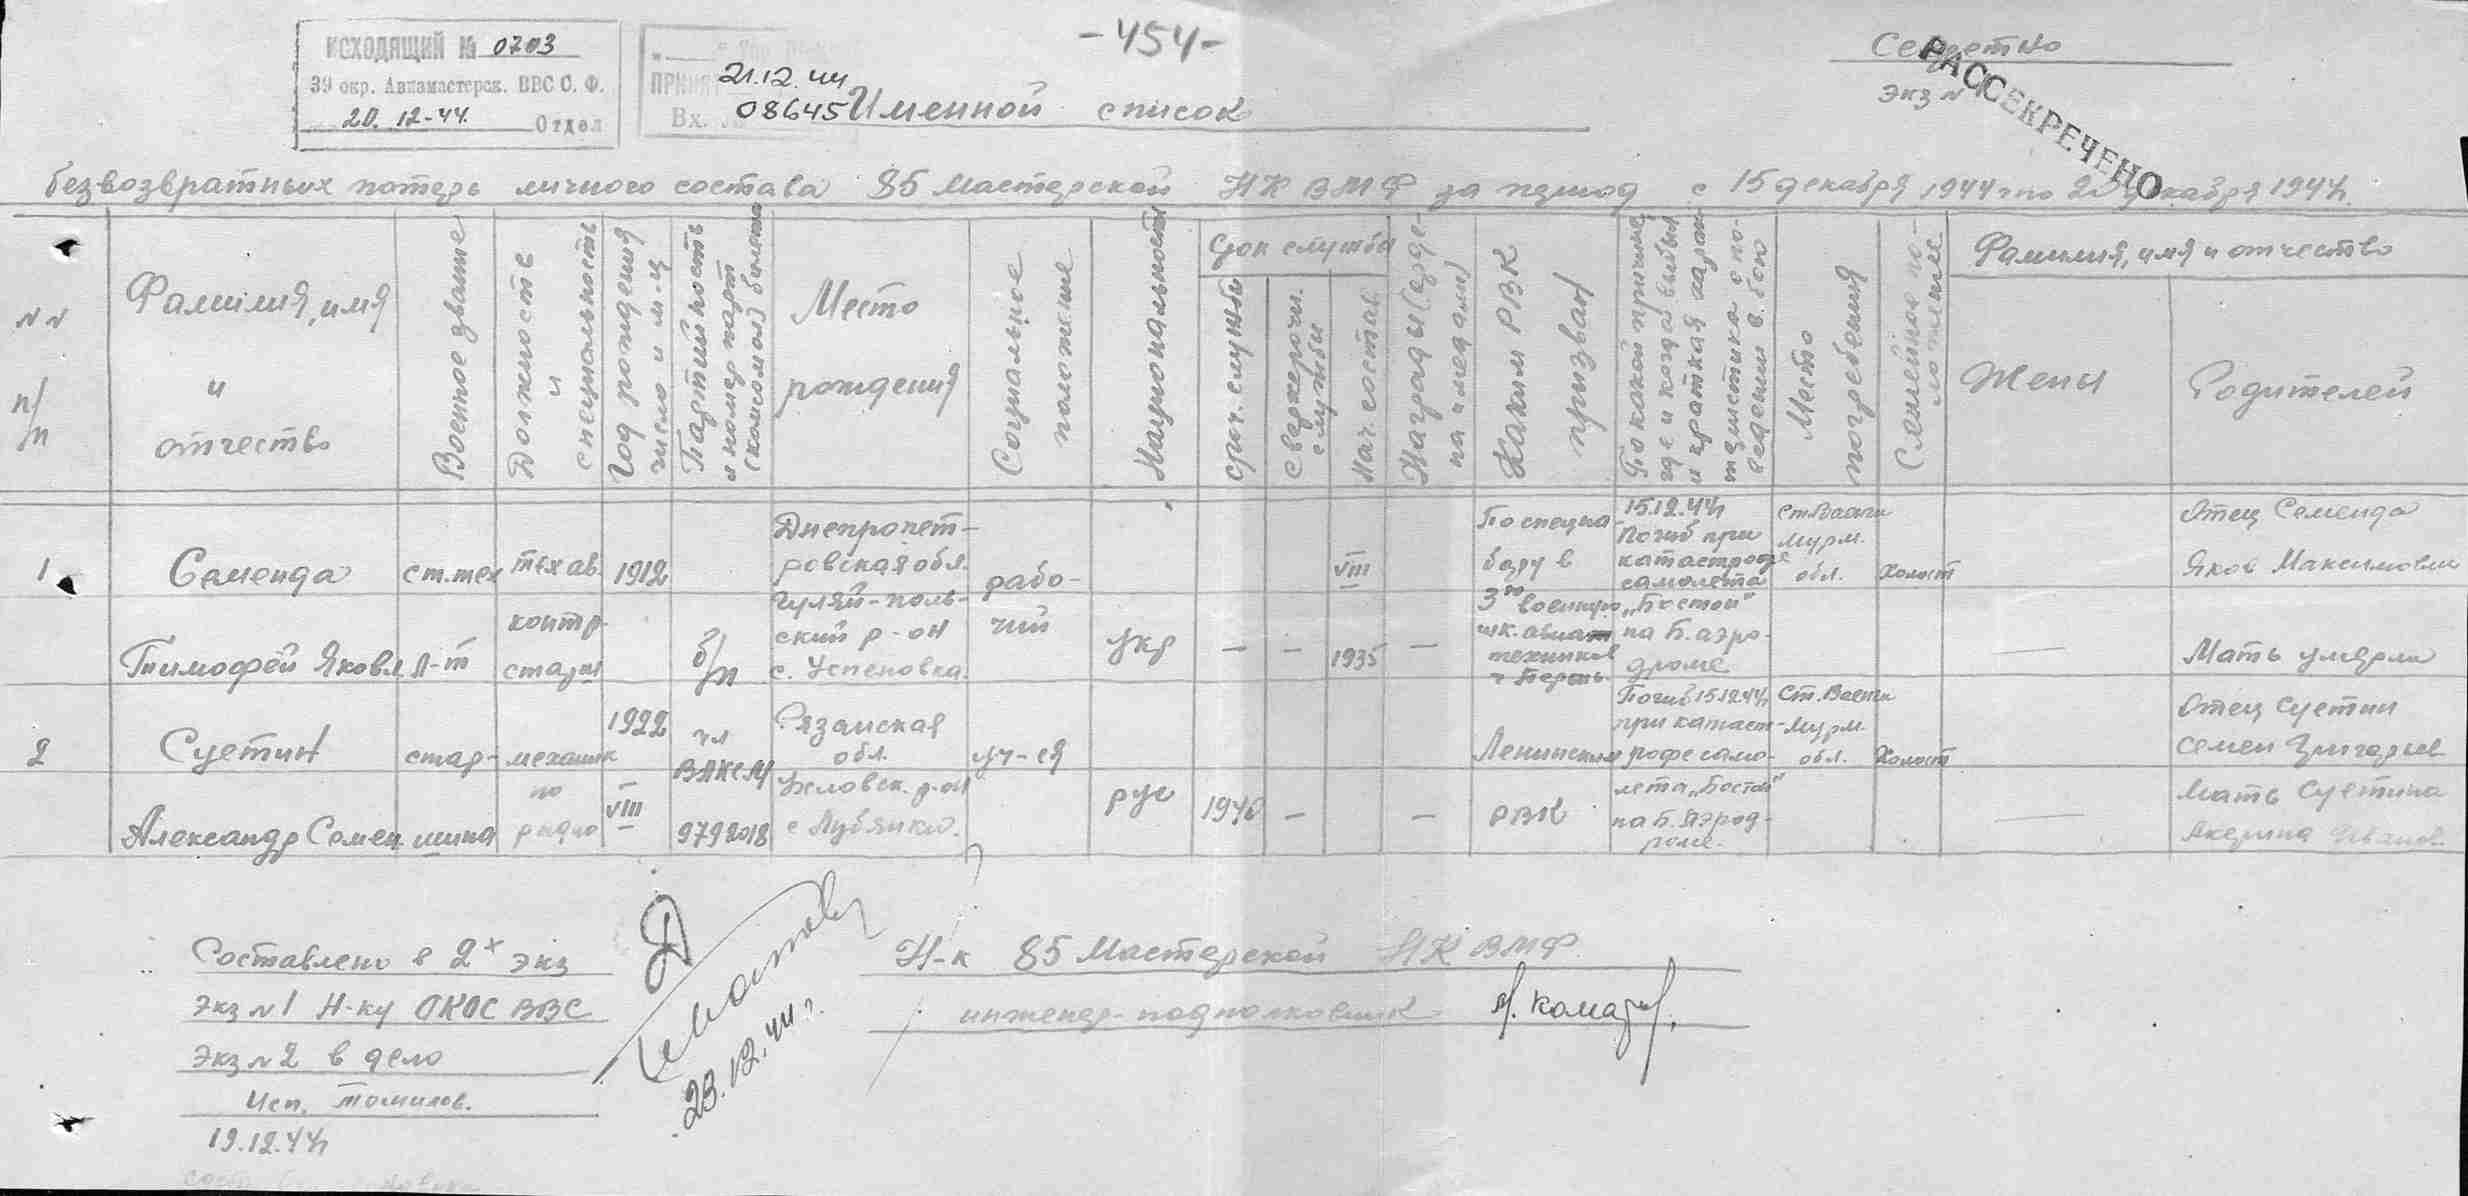 -454-
ИСХОДЯЩИЙ № 0703
39 окр. Авиамастерск. ВВС С. Ф.
20. 12-44. Отдел
21.12.44
Вх. 08645
Секретно
экз №
РАССЕКРЕЧЕНО
Именной список
безвозвратных потерь личного состава 85 Мастерской НК ВМФ за период с 15 декабря 1944 г по 20 декабря 1944г.
NN п/п
Фамилия, имя и отчество
Военное звание
Должность и специальность
Год рождения число и м-ц
Партийность и номер парт (комсомол) билета
Место рождения
Социальное положение
Национальность
Срок службы
Сверхсрочн. службы
Нач. состав
Награды (ордена и медали)
Каким РВК призван
По какой причине, где и когда выбыл
Место погребения
Семейное положение
Фамилия, имя и отчество
Жены
Родителей
1
Семенда
Тимофей Яковл
ст. тех
л-т
тех ав.
контр.
старш
1912
б/п
Днепропет-
ровская обл.
Гуляй-поль-
ский р-он
с. Успеновка.
рабо-
чий
укр
— —
VIII
1935
—
По спецна-
бору в
3ю военную
шк. авиа
техников
г Пермь.
15.12.44г
Погиб при
катастрофе
самолета
„Бостон"
на Б. аэро-
дроме
Мурм.
обл.
холост
—
Отец Семенда
Яков Максимович
Мать умерла
2
Суетин
Александр Семен
стар-
шина
механик
по
радио
1922
VIII
чл
ВЛКСМ
Рязанская
обл.
р-он
уч-ся
рус
1940
—
—
Ленинским
РВК
Погиб 15.12.44г
при катаст-
рофе само-
лета „Бостон"
на Б. Аэрод-
роме.
Ст. Ваенга
Мурм.
обл.
Холост
—
Отец Суетин
Семен Григорьев
Мать Суетина
Акулина Иванов.
Составлено в 2х экз
экз №1 Н-ку ОКОС ВВС
экз №2 в дело
Исп. Томилов.
19.12.44г
Д
23.12.44 г.
Н-к 85 Мастерской НК ВМФ
инженер-подполковник